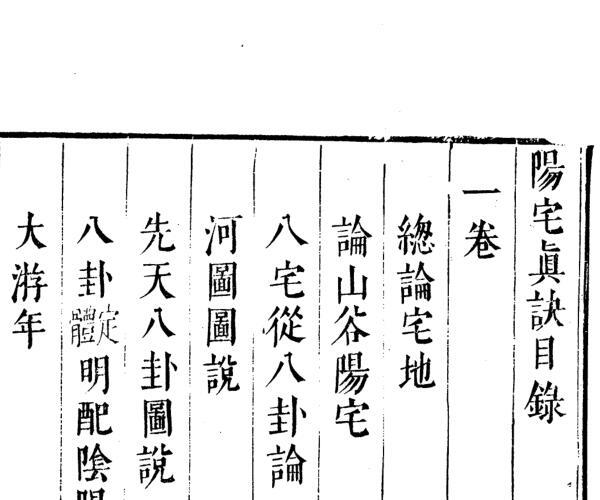 陽宅眞訣目錄
一卷
總論宅地
論山谷陽宅
八宅從八卦論
河圖圖說
先天八卦圖說
八卦定體明配陰陽
大游年